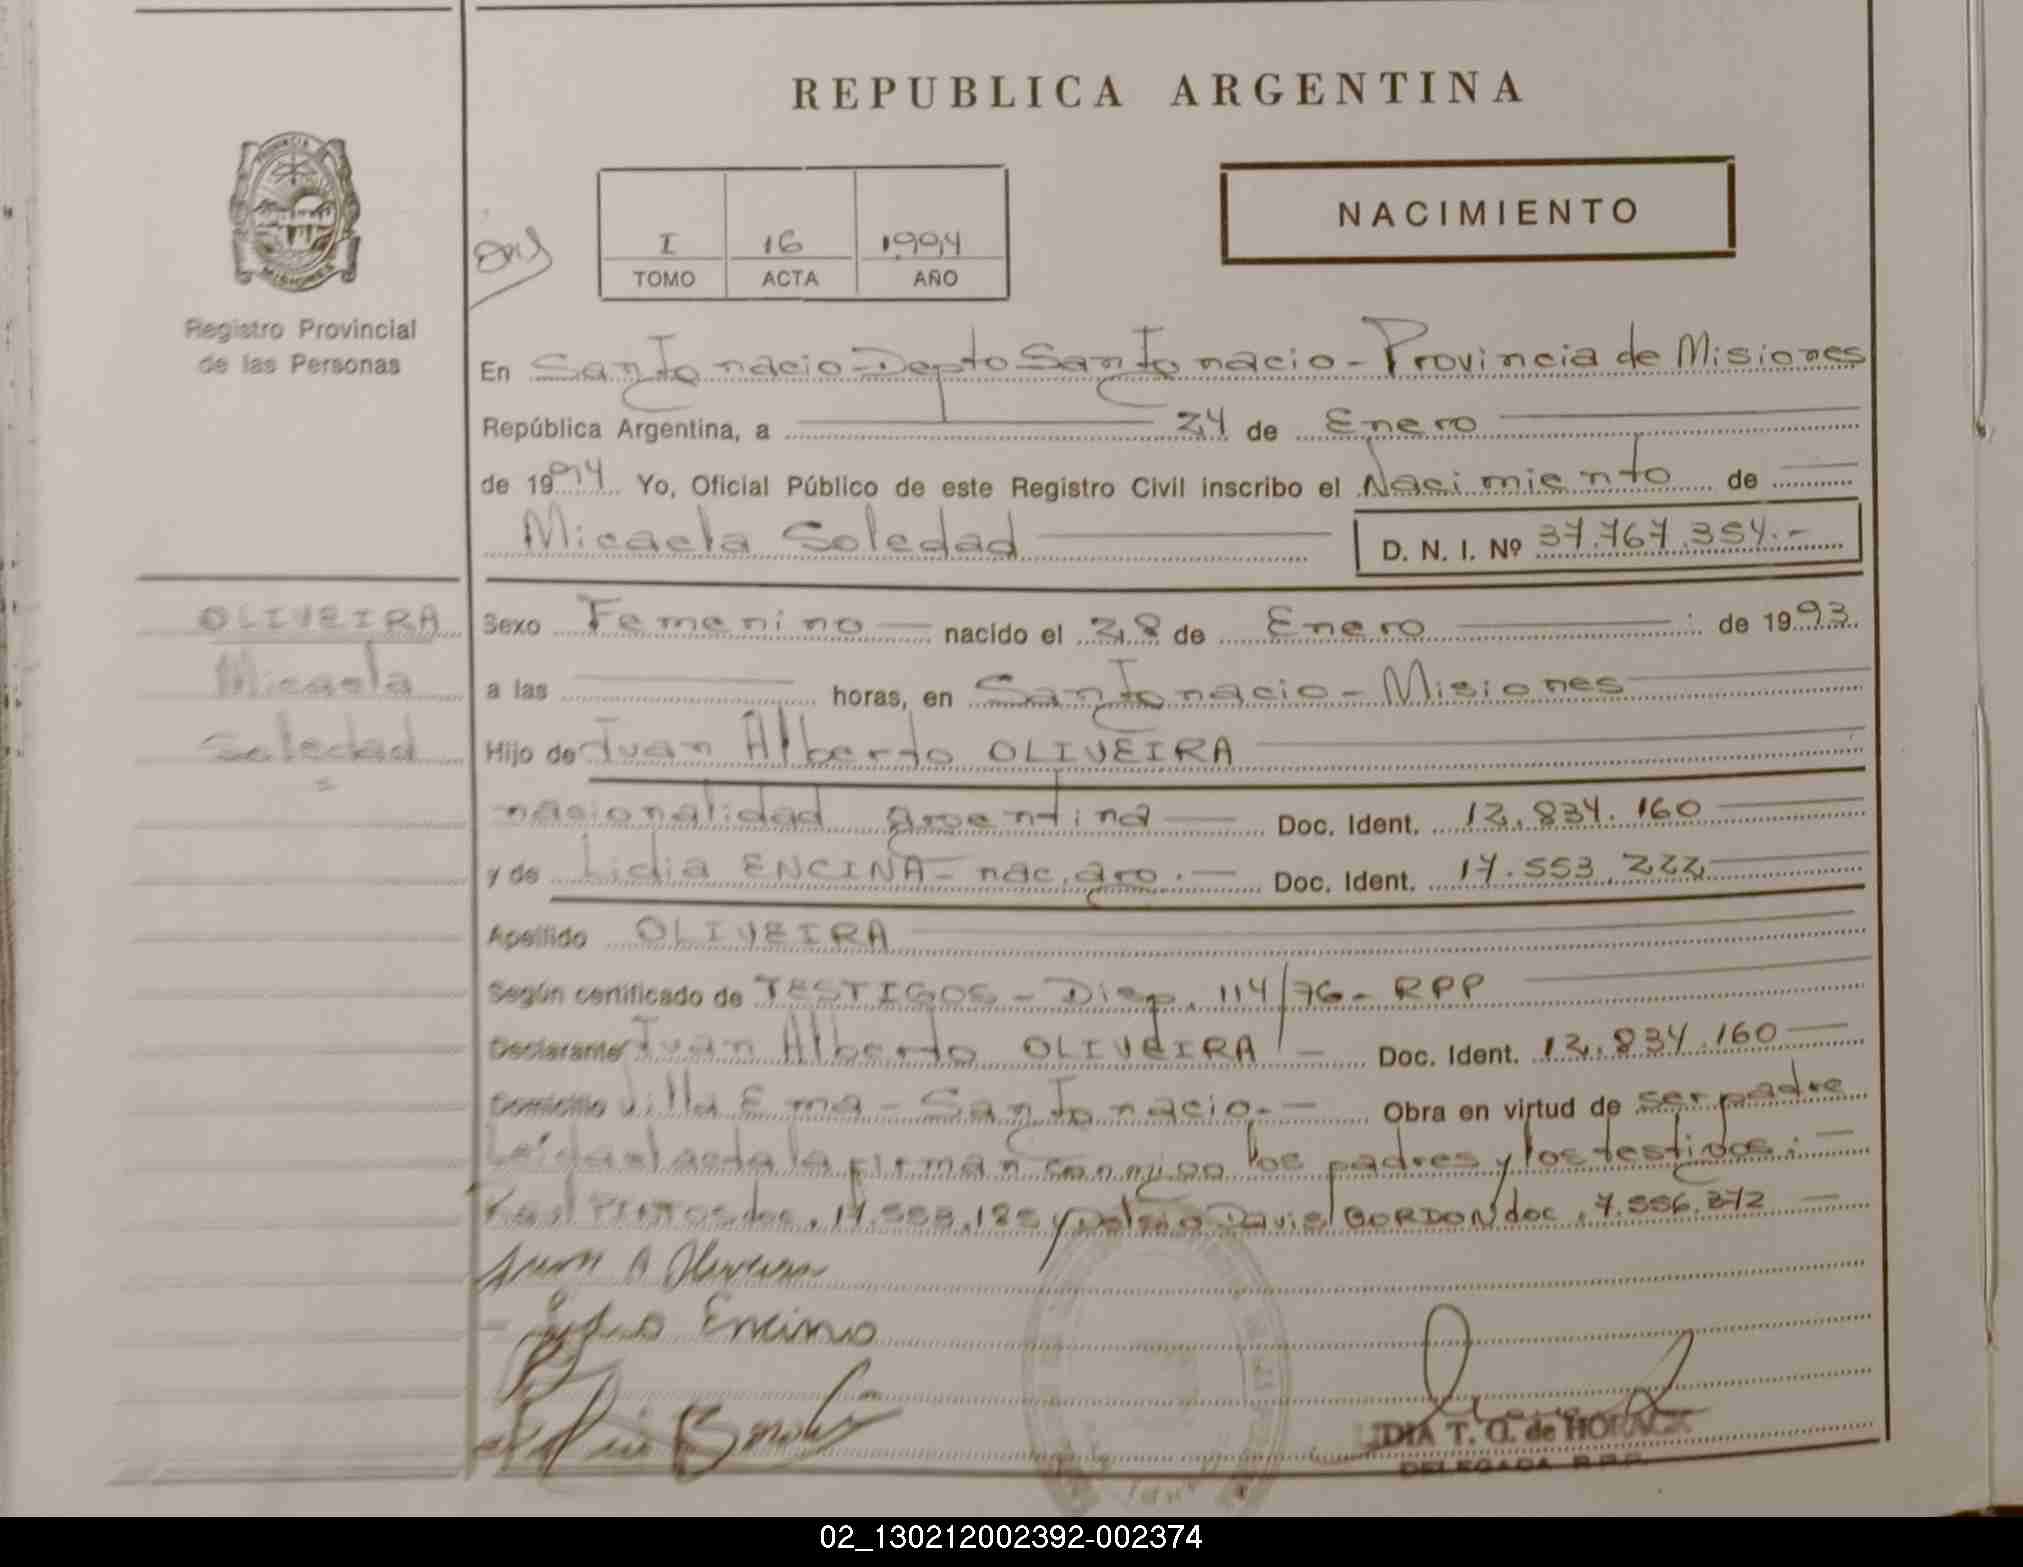 REPUBLICA ARGENTINA
PROVINCIA
MISIONES
Registro Provincial
de las Personas
I 16 1994
TOMO ACTA AÑO
NACIMIENTO
En San Ignacio - Depto San Ignacio - Provincia de Misiones
República Argentina, a 24 de Enero
de 1994 Yo, Oficial Público de este Registro Civil inscribo el Nacimiento de
Micaela Soledad D. N. I. Nº 37.767.354.-
OLIVEIRA
Micaela
Soledad
Sexo Femenino nacido el 28 de Enero de 1993
a las horas, en San Ignacio - Misiones
Hijo de Juan Alberto OLIVEIRA
nacionalidad argentina Doc. Ident. 12.834.160
y de Lidia ENCINA - nac. arg. - Doc. Ident. 17.553.222
Apellido OLIVEIRA
Según certificado de TESTIGOS - Disp. 114/76 - RPP
Declarante Juan Alberto OLIVEIRA - Doc. Ident. 12.834.160
Domicilio Villa Ema - San Ignacio. - Obra en virtud de ser padre
Leída el acta la firman conmigo los padres y los testigos: -
doc. y GORDON doc. 7.556.372 -
Juan A Oliveira
Encina
LIDIA T. G. de HORACK
DELEGADA R.P.P.
02_130212002392-002374